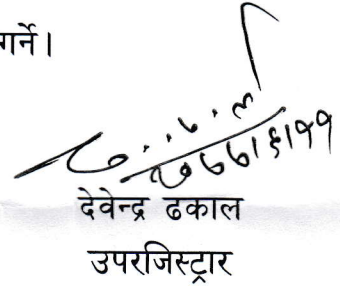 गर्ने।
२०७७।६।११
देवेन्द्र ढकाल
उपरजिस्ट्रार